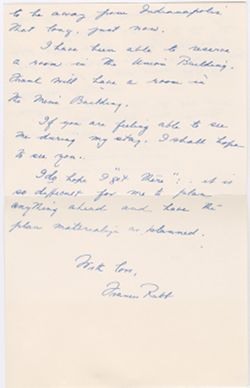 to be away from Indianapolis
that long, just now.
I have been able to reserve
a room in the Union Building.
Frank will have a room in
the Men's Building.
If you are feeling able to see
me during my stay, I shall hope
to see you.
I do hope I "get there": it is
so difficult for me to plan
anything ahead and have the
plan materialize as planned.
With love,
Frances